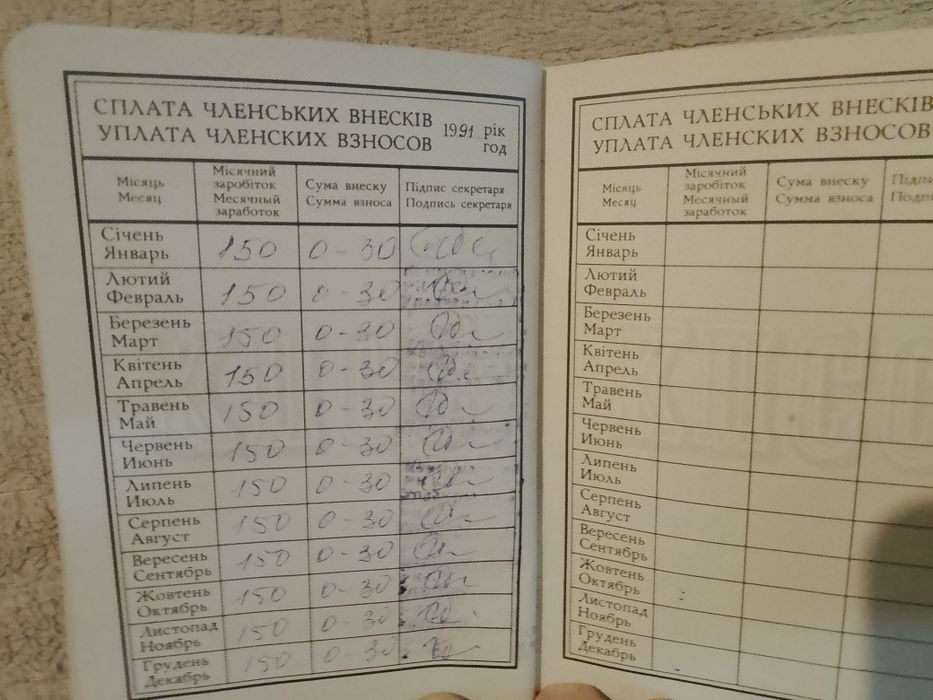 СПЛАТА ЧЛЕНСЬКИХ ВНЕСКІВ
УПЛАТА ЧЛЕНСКИХ ВЗНОСОВ
1991 рік
год
Місяць
Месяц
Місячний
заробіток
Месячный
заработок
Сума внеску
Сумма взноса
Підпис секретаря
Подпись секретаря
Січень
Январь
150 0-30
Лютий
Февраль
150 0-30
Березень
Март
150 0-30
Квітень
Апрель
150 0-30
Травень
Май
150 0-30
Червень
Июнь
150 0-30
Липень
Июль
150 0-30
Серпень
Август
150 0-30
Вересень
Сентябрь
150 0-30
Жовтень
Октябрь
150 0-30
Листопад
Ноябрь
150 0-30
Грудень
Декабрь
150 0-30
СПЛАТА ЧЛЕНСЬКИХ ВНЕСКІВ
УПЛАТА ЧЛЕНСКИХ ВЗНОСОВ
Місяць
Месяц
Місячний
заробіток
Месячный
заработок
Сума внеску
Сумма взноса
Січень
Январь
Лютий
Февраль
Березень
Март
Квітень
Апрель
Травень
Май
Червень
Июнь
Липень
Июль
Серпень
Август
Вересень
Сентябрь
Жовтень
Октябрь
Листопад
Ноябрь
Грудень
Декабрь